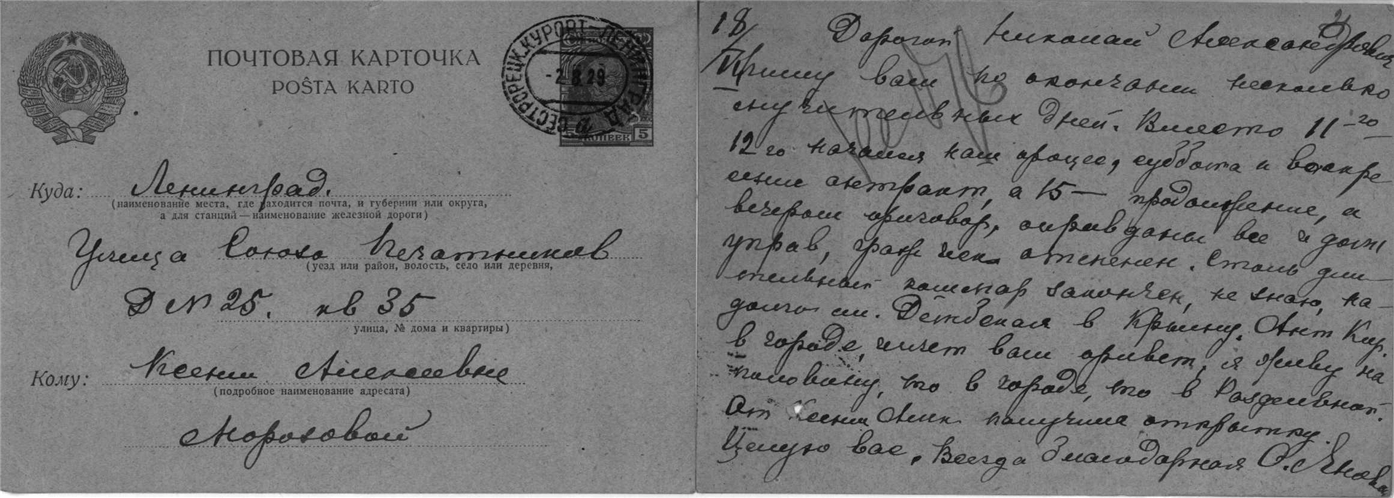 ПОЧТОВАЯ КАРТОЧКА
POŜTA KARTO
СЕСТРОРЕЦК.КУРОРТ-ЛЕНИНГРАД
-2.8.29
КОПЕЕК 5
Куда: Ленинград.
(наименование места, где находится почта, и губернии или округа,
а для станций—наименование железной дороги)
Улица Союза Печатников
(уезд или район, волость, село или деревня,
Д № 25. кв 35
улица, № дома и квартиры)
Кому: Ксении Алексеевне
(подробное наименование адресата)
Морозовой
18/VI Дорогой Николай Александрович
Пишу вам по окончании несколько
мучительных дней. Вместо 11-го
12го начался наш процес, суббота и воскре
сение антракт, а 15— продолжение, и
вечером приговор, оправданы все и дом
управ, граж иск отменен. Столь дли
тельный кошмар закончен, не знаю, на-
долго ли. Детвская в Крыму. Ант Кир.
в городе, шлет вам привет, я живу на
половину, то в городе, то в Разливной.
От Ксении Алек получила открытку.
Целую вас. Всегда благодарная